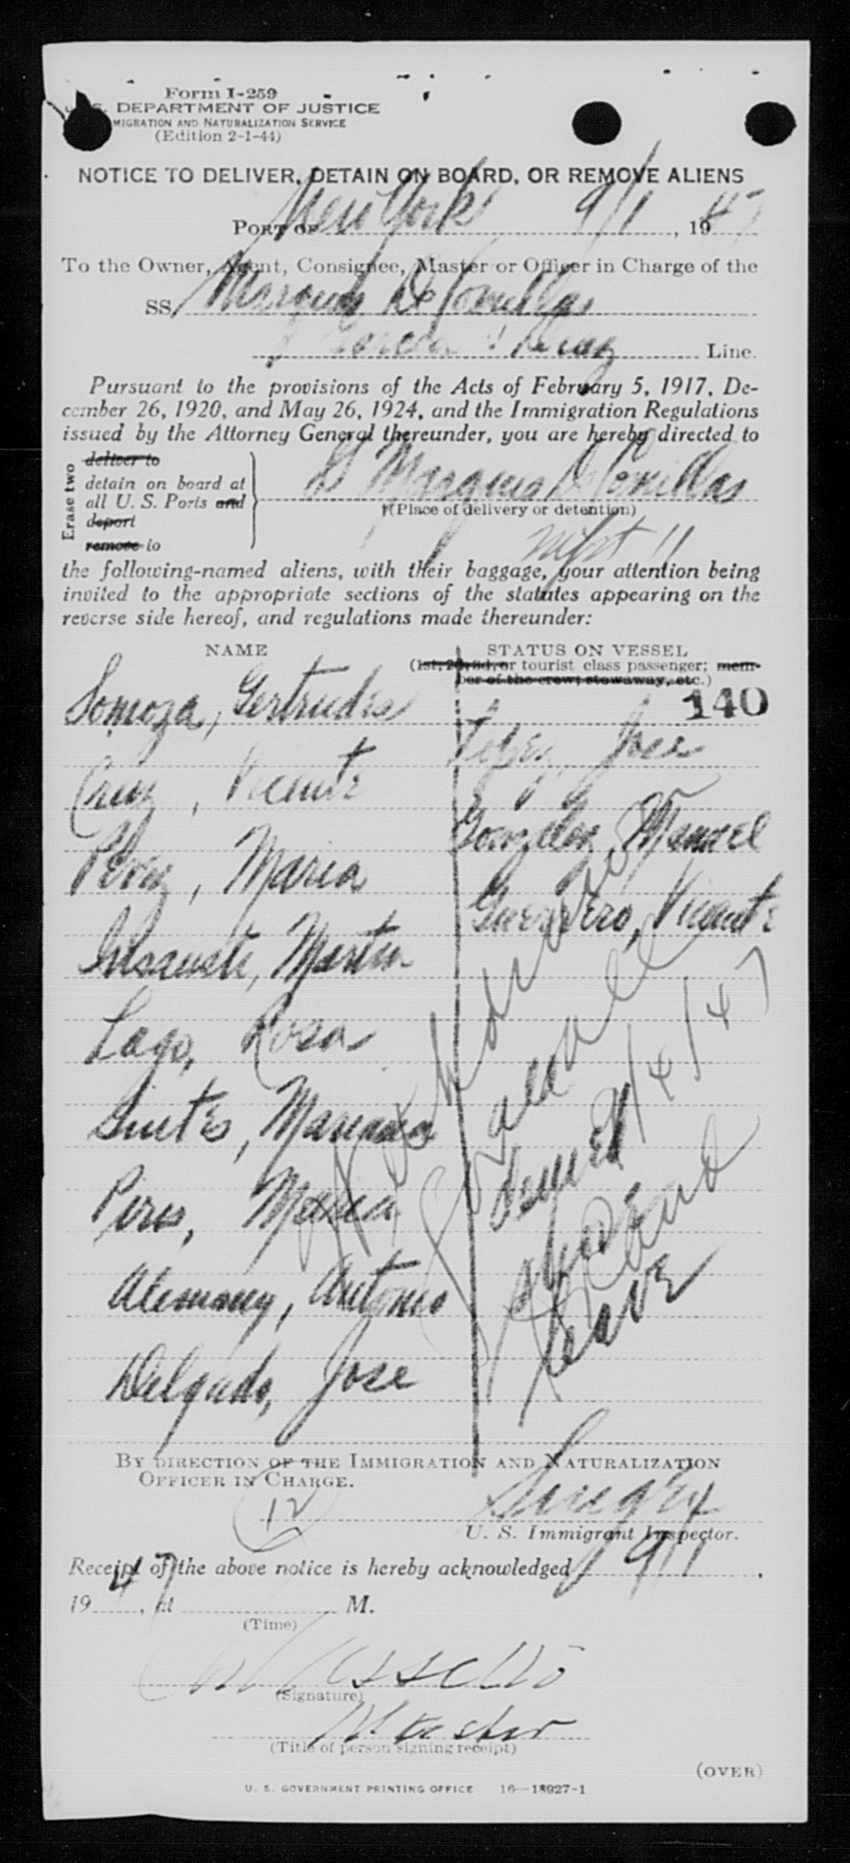 Form I-259
U. S. DEPARTMENT OF JUSTICE
IMMIGRATION AND NATURALIZATION SERVICE
(Edition 2-1-44)
NOTICE TO DELIVER, DETAIN ON BOARD, OR REMOVE ALIENS
PORT OF New York 9/1, 1947
To the Owner, Agent, Consignee, Master or Officer in Charge of the
SS Marques De Comillas
Garcia & Diaz Line.
Pursuant to the provisions of the Acts of February 5, 1917, De-
cember 26, 1920, and May 26, 1924, and the Immigration Regulations
issued by the Attorney General thereunder, you are hereby directed to
Erase two
deliver to
detain on board at
all U. S. Ports and
deport
remove to
Marques De Comillas
(Place of delivery or detention)
the following-named aliens, with their baggage, your attention being
invited to the appropriate sections of the statutes appearing on the
reverse side hereof, and regulations made thereunder:
NAME
STATUS ON VESSEL
(1st, 2d, 3d, or tourist class passenger; mem-
ber of the crew; stowaway, etc.)
140
Somoza, Gertrudis
Lopez, Jose
Cruz, Vicente
Gonzalez, Manuel
Perez, Maria
Guerrero, Vicente
Martin
Lago, Rosa
Mariana
Maria
Alemany, Antonio
Delgado, Jose
all
9/4/47
shore
leave
BY DIRECTION OF THE IMMIGRATION AND NATURALIZATION
OFFICER IN CHARGE.
12
U. S. Immigrant Inspector.
Receipt of the above notice is hereby acknowledged 9/1,
1947, at M.
(Time)
(Signature)
Master
(Title of person signing receipt)
(OVER)
U. S. GOVERNMENT PRINTING OFFICE 16—18927-1